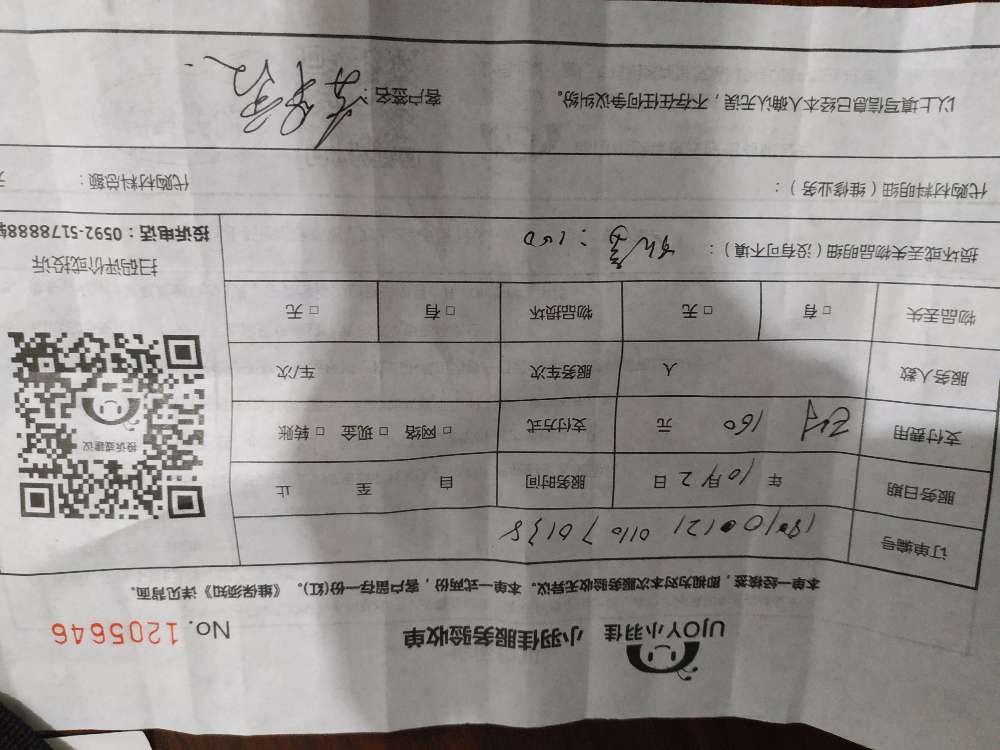 UJOY小羽佳 小羽佳服务验收单 No. 1205646
本单一经核签，即视为对本次服务验收无异议。本单一式两份，客户留存一份(红)。《维保须知》详见背面。
订单编号
服务日期 年 10月 2 日 服务时间 自 至 止
支付费用 160 元 支付方式 □ 网络 □ 现金 □ 转账
服务人数 人 服务车次 车/次
物品丢失 □ 有 □ 无 物品损坏 □ 有 □ 无
投诉或建议
扫码评价或投诉
投诉电话：0592-5178888转
损坏或丢失物品明细（没有可不填）： : 150
代购材料明细（维修业务）： 代购材料总额： 元
以上填写信息已经本人确认无误，不存在任何争议纠纷。 客户签名：